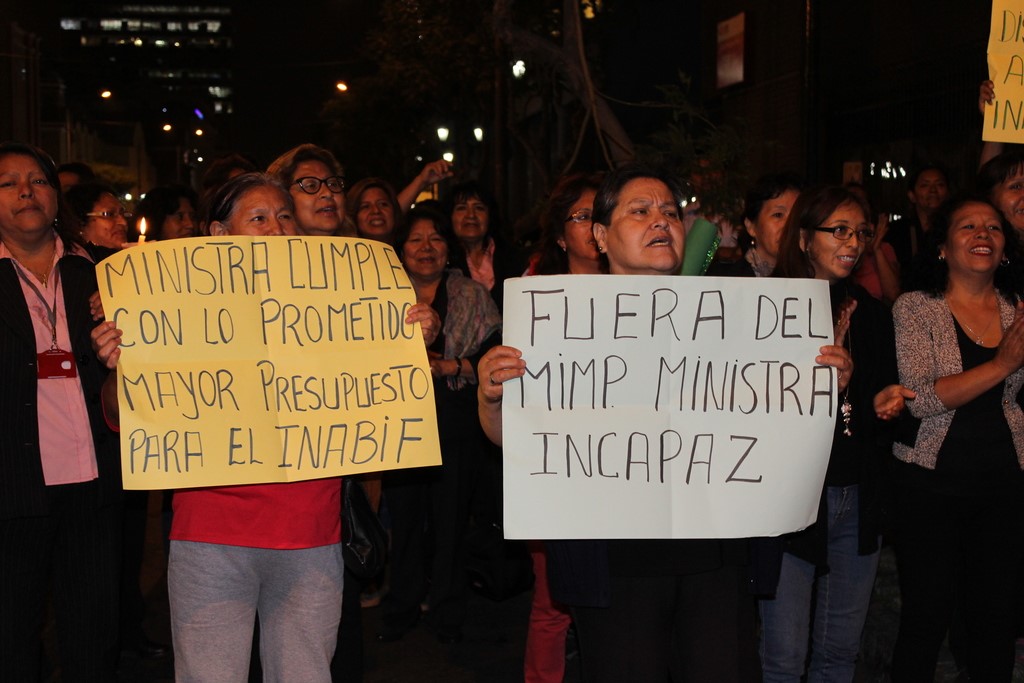 MINISTRA CUMPLE
CON LO PROMETIDO
MAYOR PRESUPUESTO
PARA EL INABIF
FUERA DEL
MIMP. MINISTRA
INCAPAZ